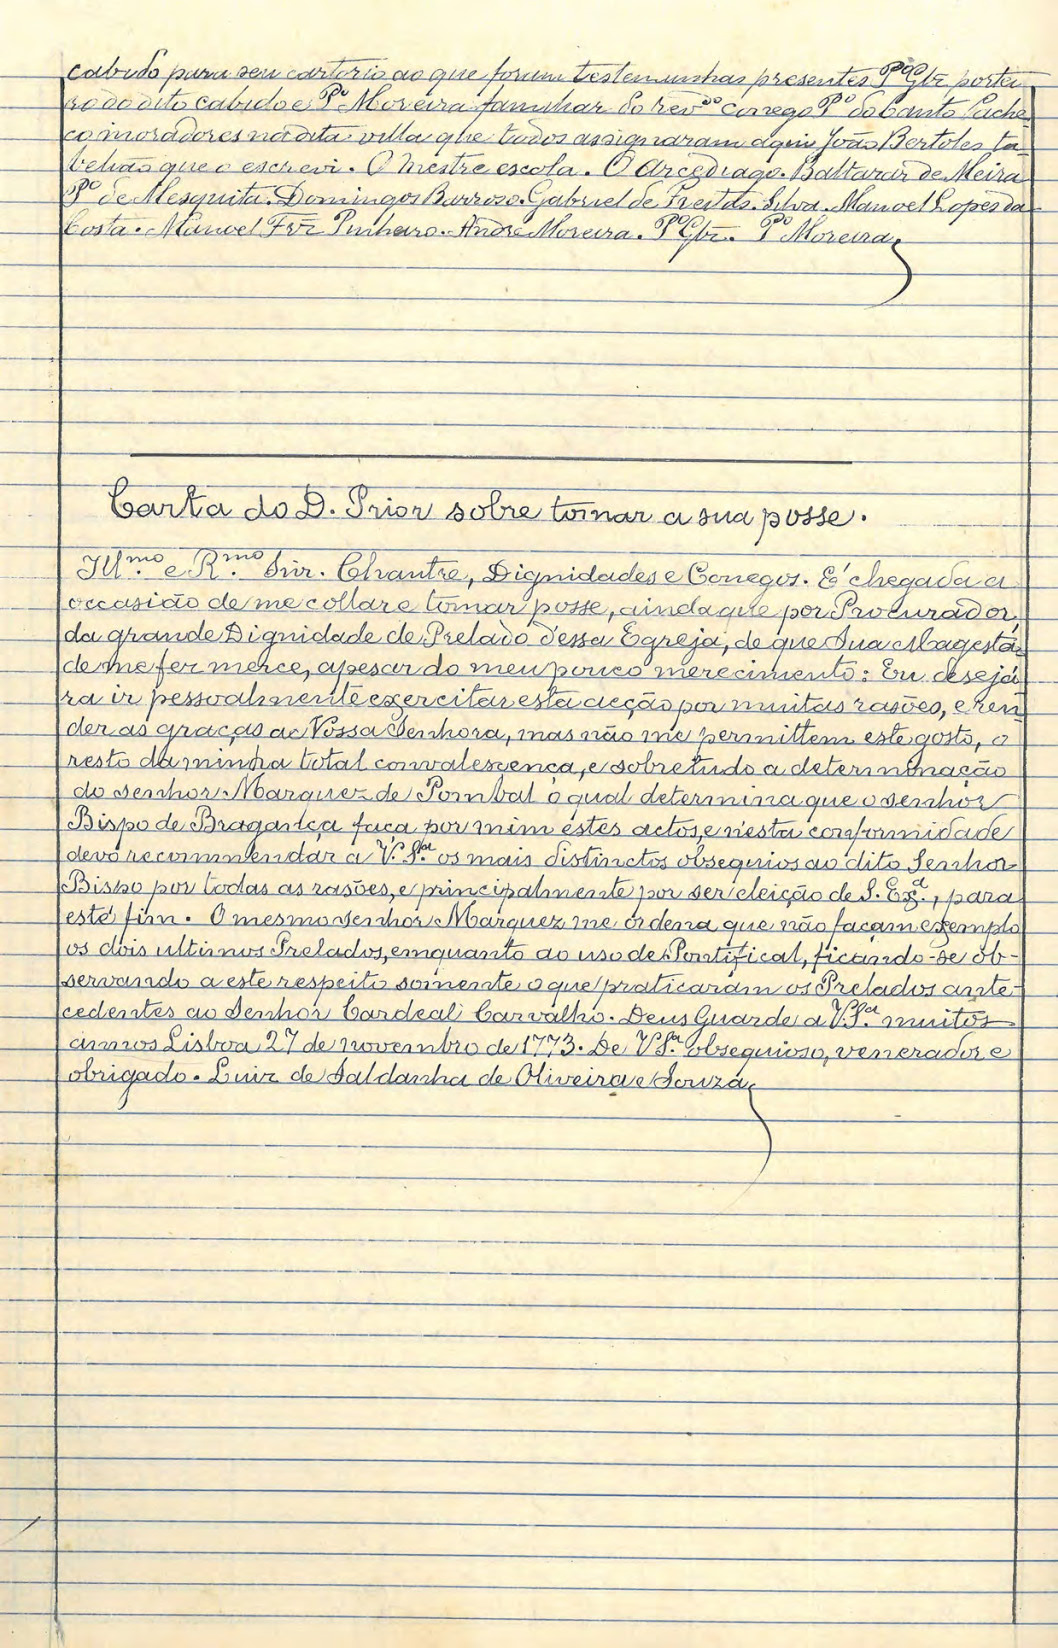 cabido para seu cartorio ao que foram testemunhas presentes Pº Glz portei-
ro do dito cabido e Pº Moreira familiar do revdo conego Pº do Canto Pache-
co moradores na dita villa que todos assignaram aqui João Bertoles ta-
belião que o escrevi. O mestre escola. O Arcediago. Baltazar de Meira
Pº de Mesquita. Domingos Barroso. Gabriel de Freitas. Silva. Manoel Lopes da
Costa. Manuel Frz Pinheiro. Andre Moreira. Pº Glz. Pº Moreira
Carta do D. Prior sobre tomar a sua posse.
Ill.mo e R.mo Snr. Chantre, Dignidades e Conegos. E' chegada a
occasião de me collar e tomar posse, ainda que por Procurador,
da grande Dignidade de Prelado d'essa Egreja, de que Sua Magesta-
de me fez merce, apesar do meu pouco merecimento: Eu desejá-
ra ir pessoalmente exercitar esta acção por muitas rasões, e ren-
der as graças a Vossa Senhora, mas não me permittem este gosto, o
resto da minha total convalescença, e sobretudo a determinação
do senhor Marquez de Pombal o qual determina que o senhor
Bispo de Bragança faça por mim estes actos, e n'esta conformidade
devo recommendar a V. S.ra os mais distinctos obsequios ao dito Senhor
Bispo por todas as rasões, e principalmente por ser eleição de S. Ex.a, para
este fim. O mesmo senhor Marquez me ordena que não façam exemplo
os dois ultimos Prelados, emquanto ao uso de Pontifical, ficando-se ob-
servando a este respeito somente o que praticaram os Prelados ante-
cedentes ao Senhor Cardeal Carvalho. Deus Guarde a V. S.ra muitos
annos Lisboa 27 de novembro de 1773. De V. S.ra obsequioso, venerador e
obrigado. Luiz de Saldanha de Oliveira e Souza